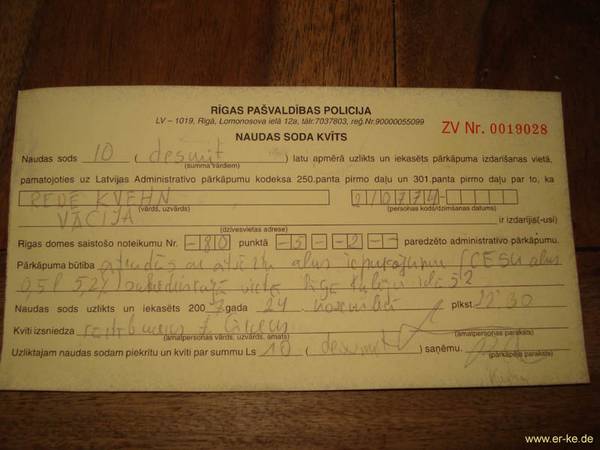 RĪGAS PAŠVALDĪBAS POLICIJA
LV – 1019, Rīgā, Lomonosova ielā 12a, tālr.7037803, reģ.Nr.90000055099
ZV Nr. 0019028
NAUDAS SODA KVĪTS
Naudas sods 10 ( desmit ) latu apmērā uzlikts un iekasēts pārkāpuma izdarīšanas vietā,
(summa vārdiem)
pamatojoties uz Latvijas Administratīvo pārkāpumu kodeksa 250.panta pirmo daļu un 301.panta pirmo daļu par to, ka
RENE KVEHN 210774-
(vārds, uzvārds) (personas kods/dzimšanas datums)
VĀCIJA ir izdarījis(-usi)
(dzīvesvietas adrese)
Rīgas domes saistošo noteikumu Nr. -80 punktā -3-2-- paredzēto administratīvo pārkāpumu.
Pārkāpuma būtība atradās ar atvērtu alus iepakojumu (CESU alus
0,5 l 5,2% vietā Kaļķu ielā
Naudas sods uzlikts un iekasēts 2007 gada 24. plkst. 22:30
Kvīti izsniedza
(amatpersonas vārds, uzvārds, amats) (amatpersonas paraksts)
Uzliktajam naudas sodam piekrītu un kvīti par summu Ls 10 ( desmit ) saņēmu.
(pārkāpēja paraksts)
www.er-ke.de